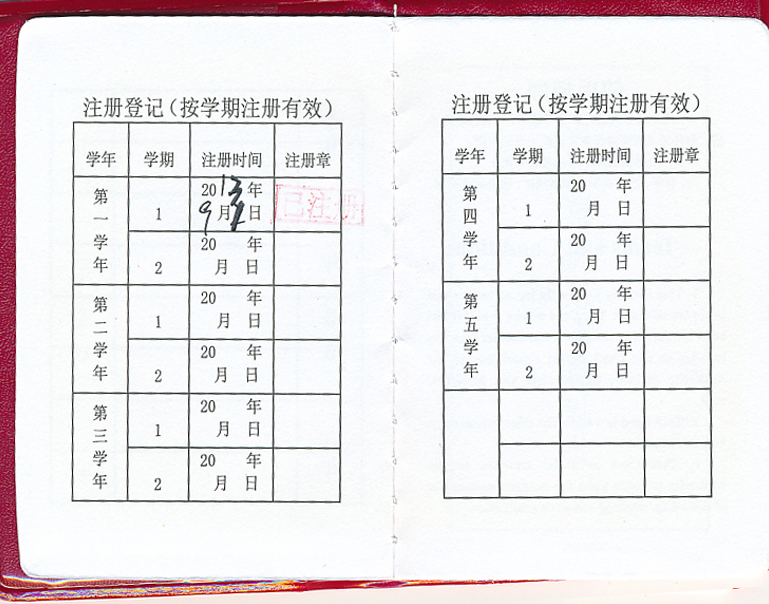 注册登记（按学期注册有效）
学年 学期 注册时间 注册章
第一学年 1 2013年
9月 日
2 20 年
月 日
第二学年 1 20 年
月 日
2 20 年
月 日
第三学年 1 20 年
月 日
2 20 年
月 日
注册登记（按学期注册有效）
学年 学期 注册时间 注册章
第四学年 1 20 年
月 日
2 20 年
月 日
第五学年 1 20 年
月 日
2 20 年
月 日